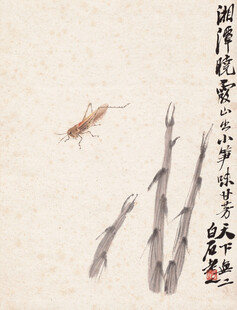 湘潭曉霞山出小筍味甘芳
天下無二
白石